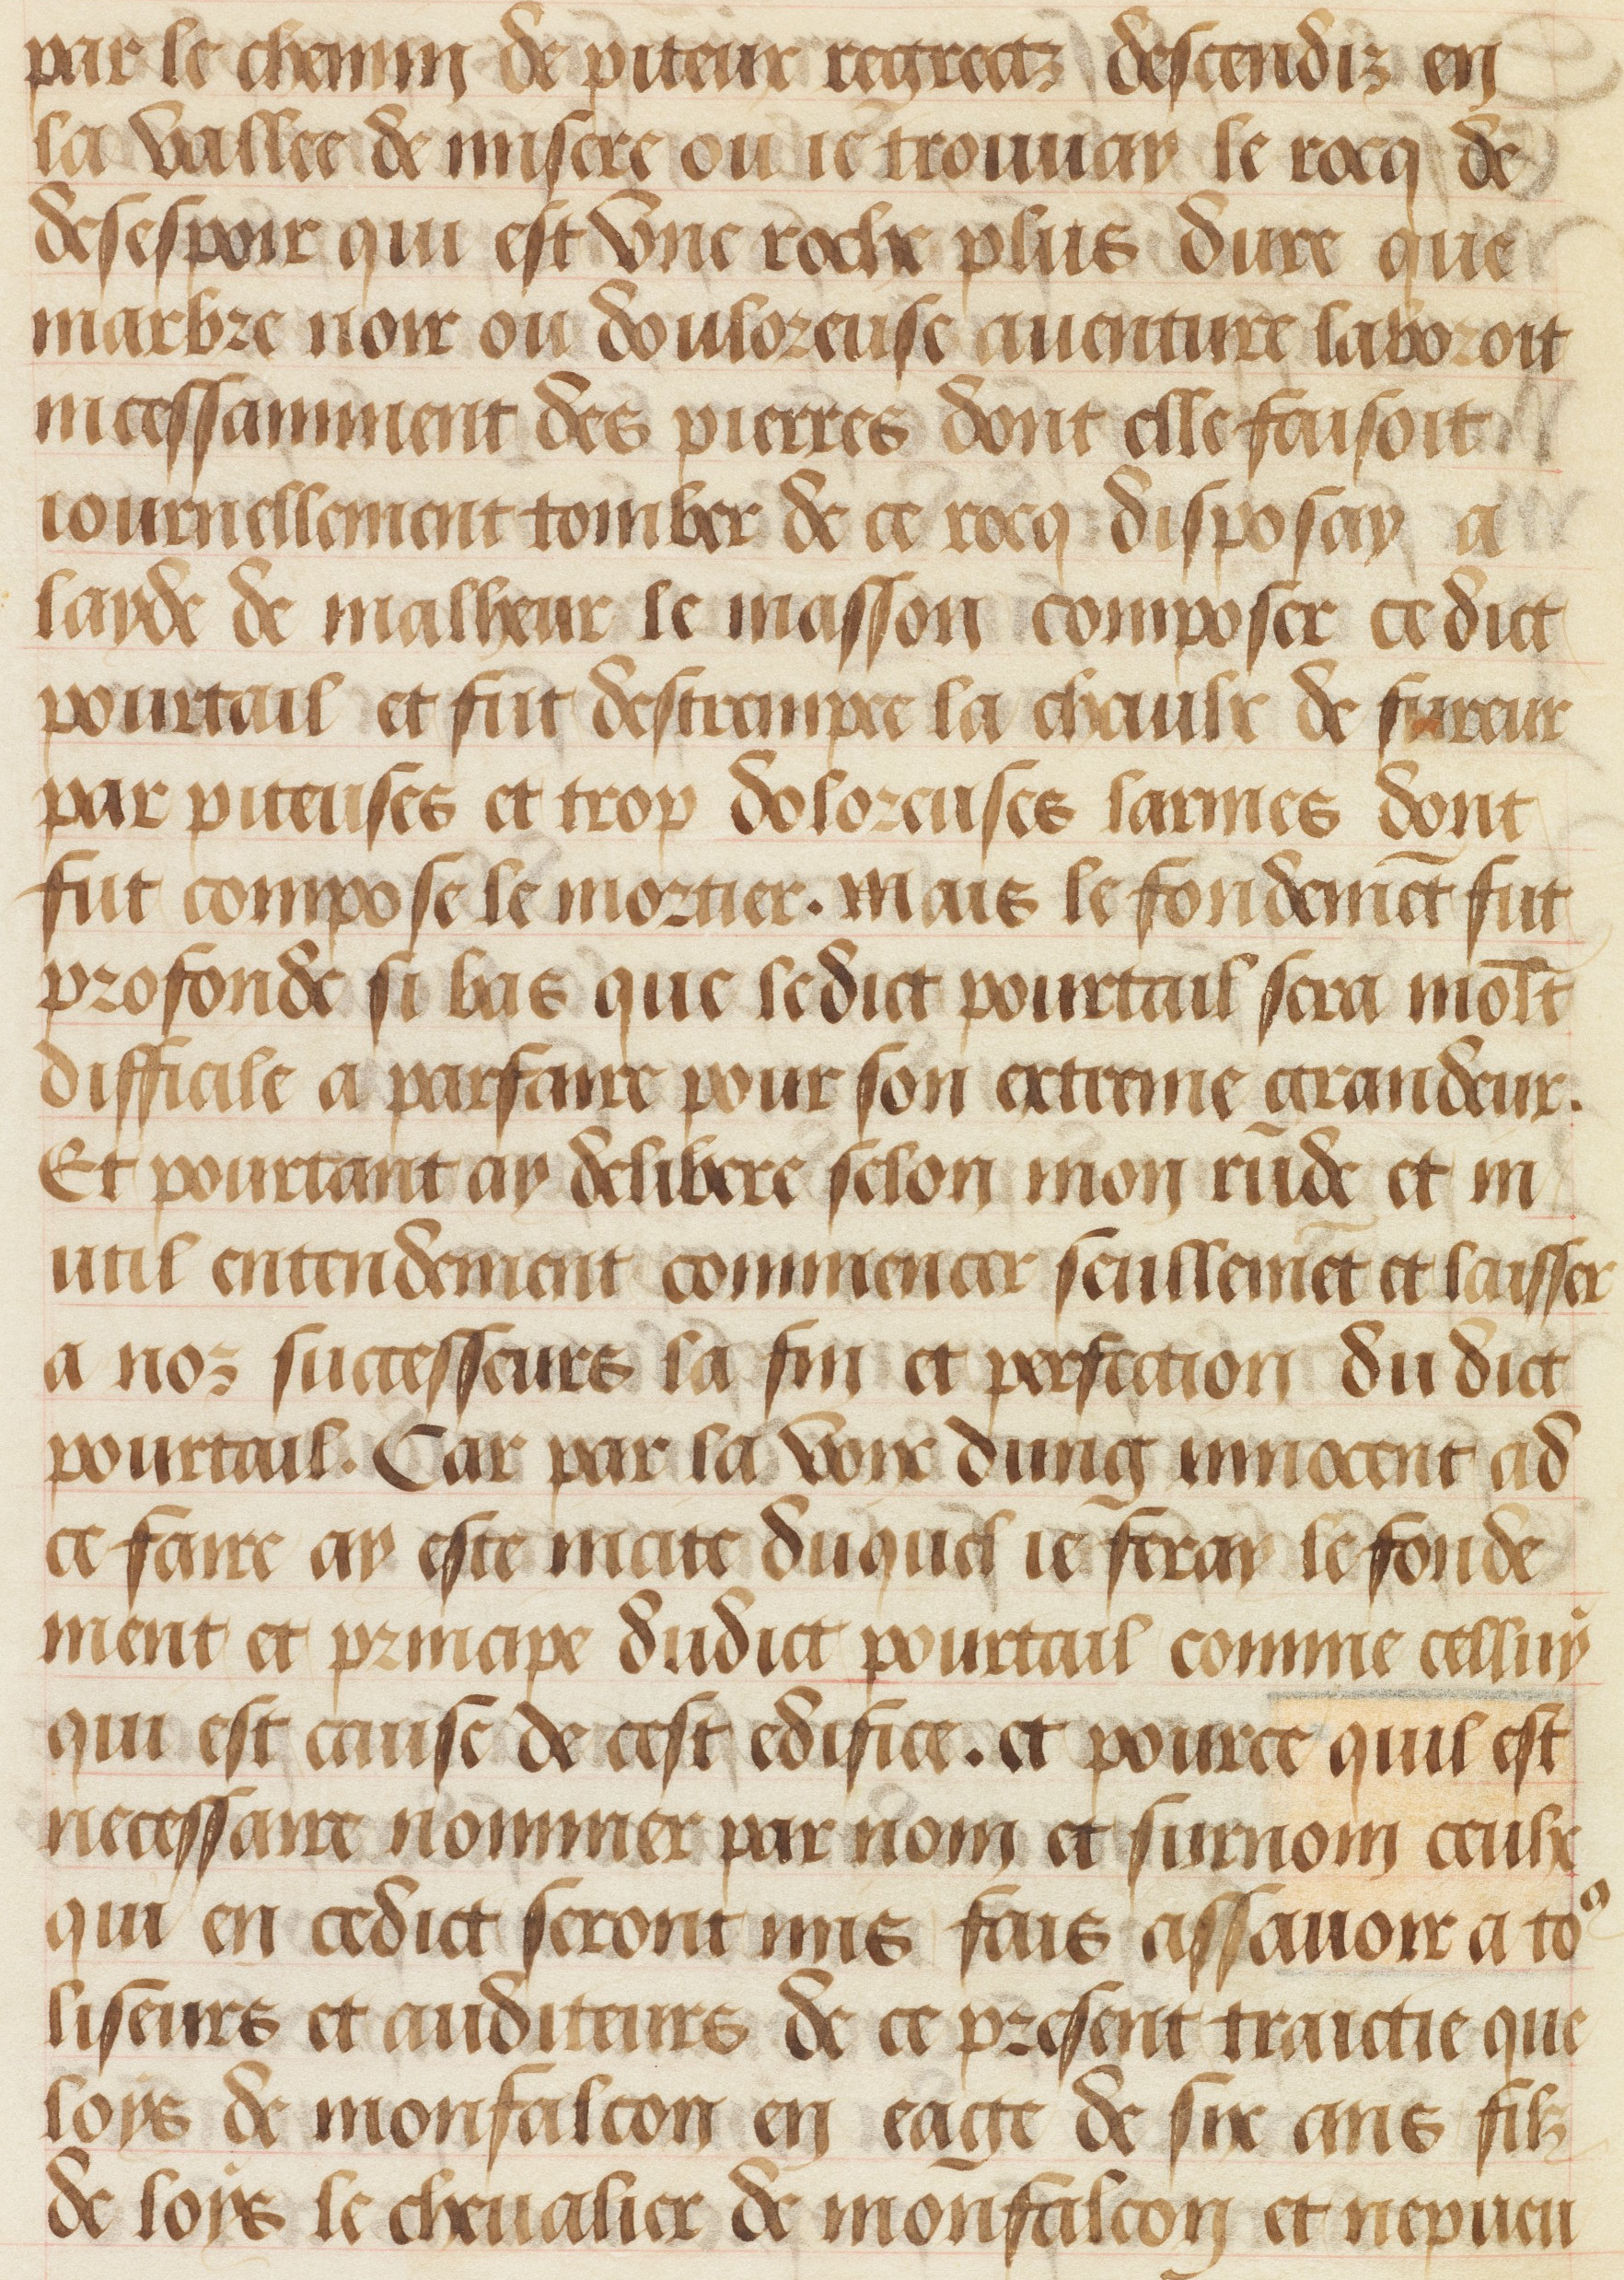 par le chemin de piteux regrectz descendiz en
la vallee de misere ou ie trouuay le rocq de
desespoir qui est vne roche plus dure que
marbre noir ou douloreuse auenture laboroit
incessamment des pierres dont elle faisoit
iournellement tomber de ce rocq disposay a
layde de malheur le masson composer ce dict
pourtail et fut destrempee la chaulx de fureur
par piteuses et trop doloreuses larmes dont
fut compose le mortier. Mais le fondemēt fut
profonde si bas que ledict pourtail sera mōlt
difficile a parfaire pour son extreme grandeur.
Et pourtant ay delibere selon mon rude et in
util entendement commencer seullemēt et laisser
a noz successeurs la fin et perfection du dict
pourtail. Car par la voix dung innocent ad
ce faire ay este incite duquel ie feray le fonde
ment et principe dudict pourtail comme celluy
qui est cause de cest edifice. et pource quil est
necessaire nommer par nom et surnom ceulx
qui en cedict seront mis fais assauoir a toꝰ
liseurs et auditeurs de ce present traictie que
loys de monfalcon en eage de six ans filz
de loys le cheualier de monfalcon et nepueu